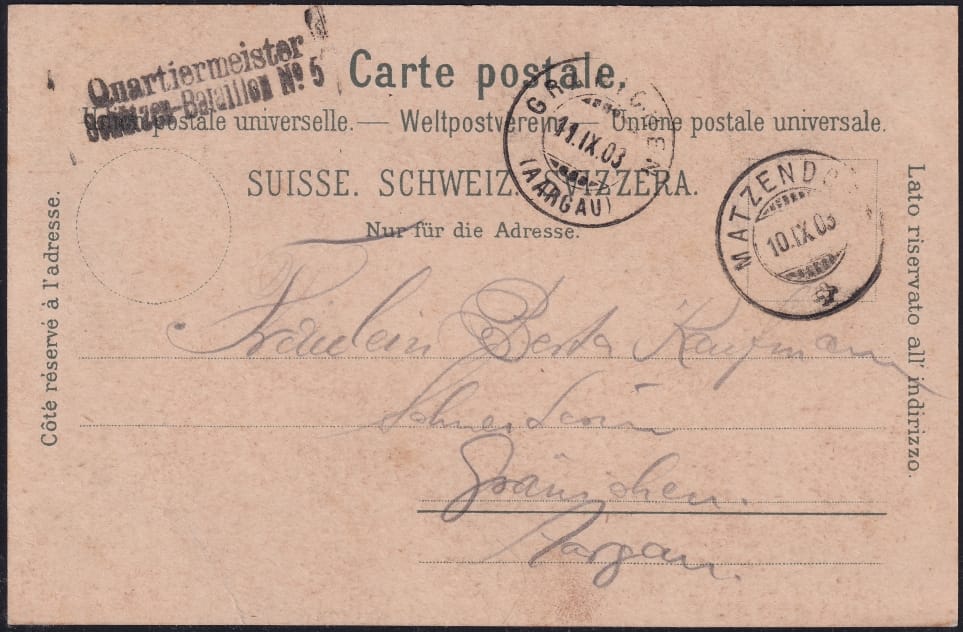 Quartiermeister
Schützen-Bataillon Nº 5
Carte postale.
Union postale universelle. — Weltpostverein. — Unione postale universale.
SUISSE. SCHWEIZ. SVIZZERA.
Nur für die Adresse.
Côté réservé à l'adresse.
Lato riservato all' indirizzo.
GRÄNICHEN
11.IX.03
(AARGAU)
MATZENDORF
10.IX.03
Fräulein Berta Kaufmann
Schneiderin
Gränichen.
Aargau.